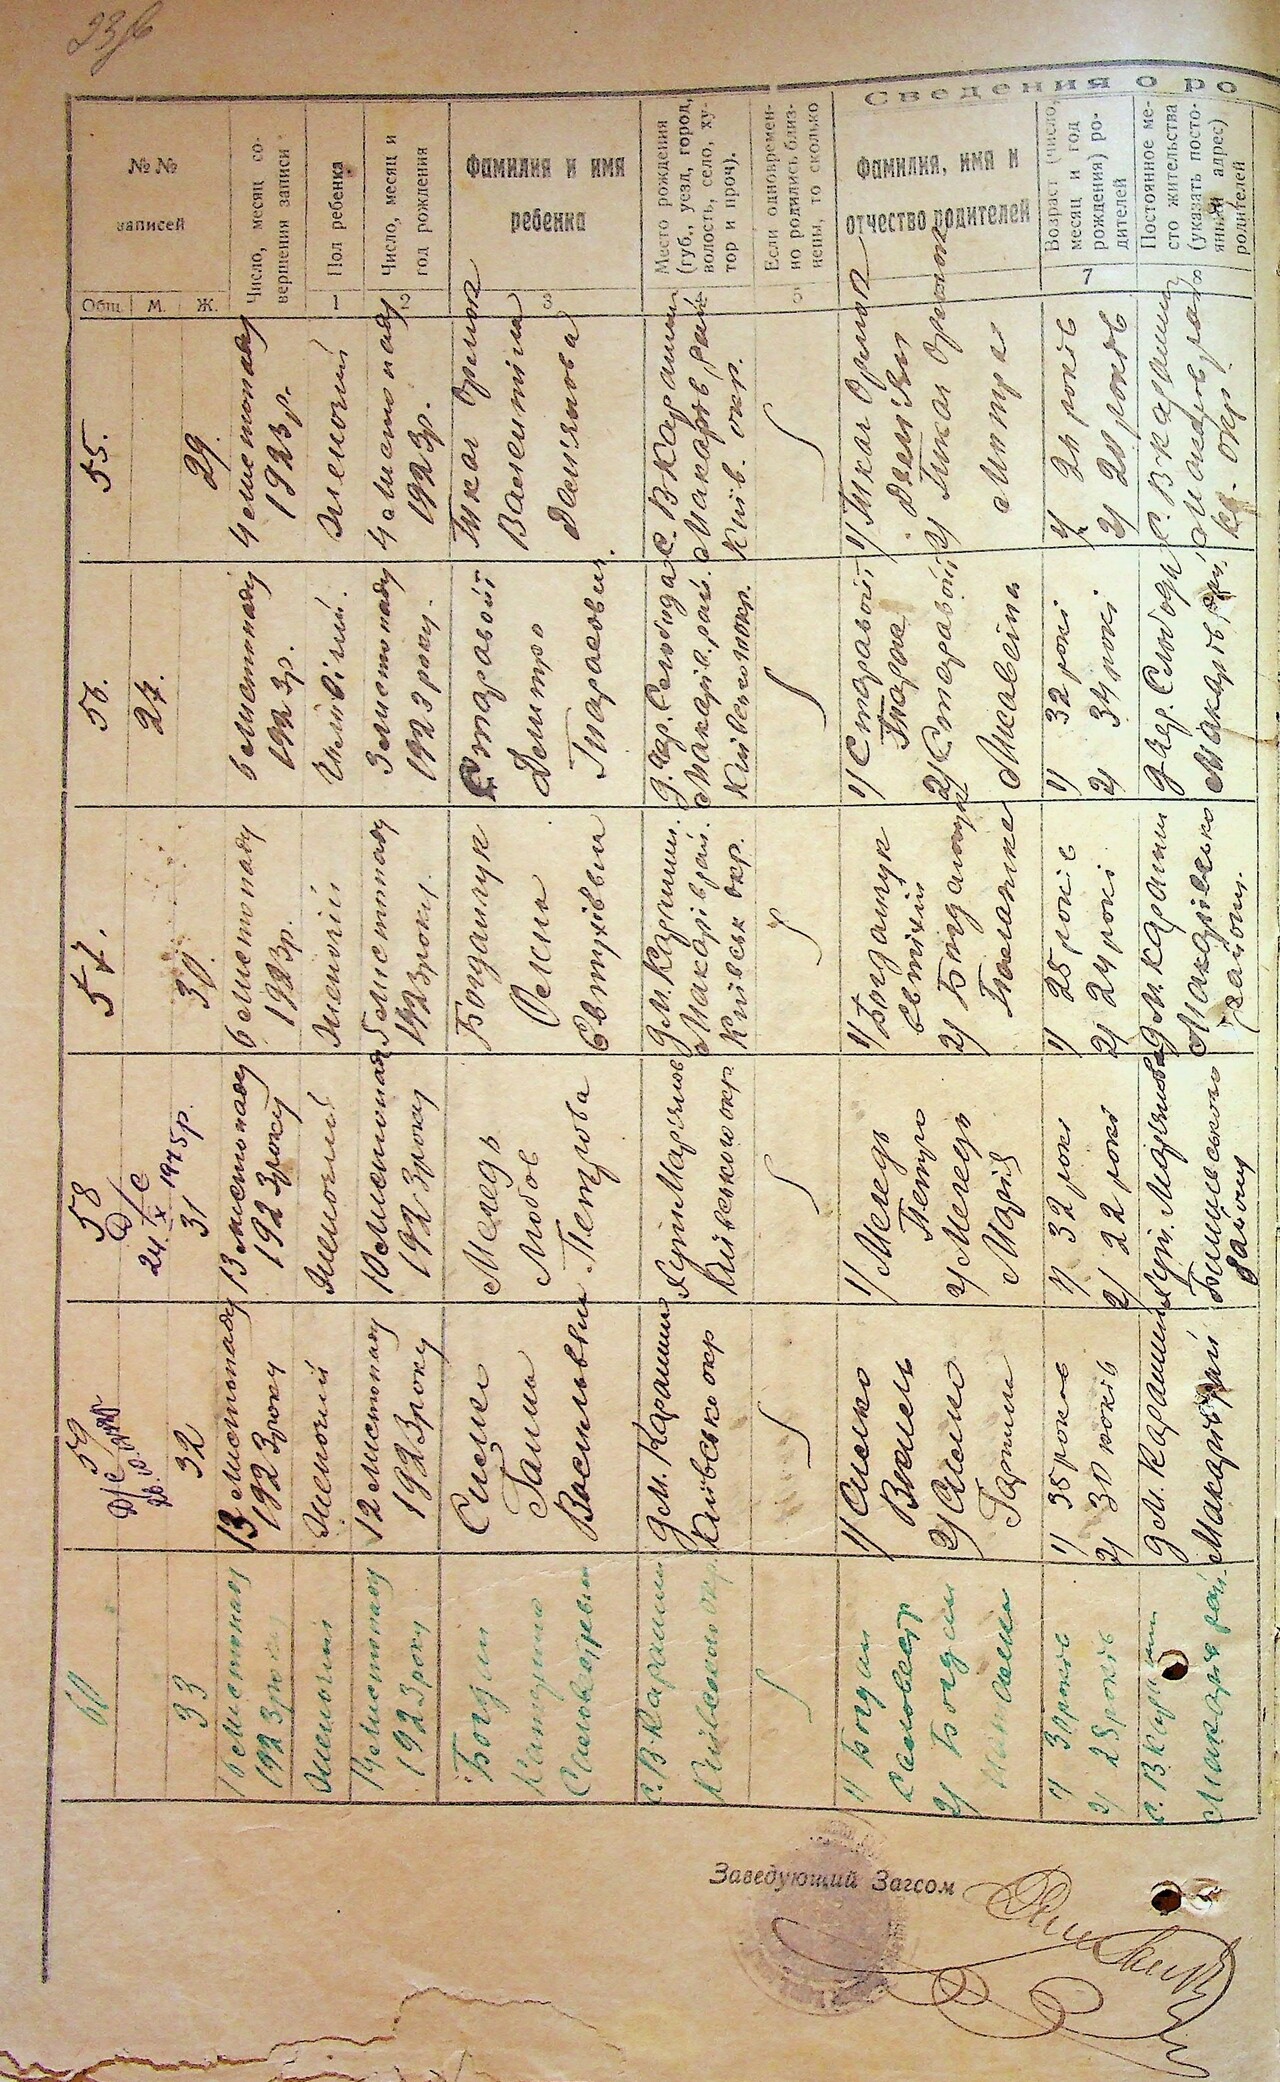 23 об
Сведения о ро
№№
записей
Общ.
М.
Ж.
Число, месяц со-
вершения записи
Пол ребенка
1
Число, месяц и
год рождения
2
Фамилия и имя
ребенка
3
Место рождения
(губ., уезд, город,
волость, село, ху-
тор и проч.).
Если одновремен-
но родились близ-
нецы, то сколько
5
Фамилия, имя и
отчество родителей
Возраст (число,
месяц и год
рождения) ро-
дителей
7
Постоянное ме-
сто жительства
(указать посто-
янный адрес)
родителей
55.
29.
4 листопаду
1923 р.
Жіночий
4 листопаду
1923р.
Ткач
Валентіна
Дем'янова
с. В Карашин
Макарів рай
Київ. окр.
1) Ткач
Дем'ян
2) Ткач
1) 24 років
2) 20 років
с. В Карашин
Макарів рай
56.
27.
6 листопаду
1923р.
Чоловічий.
3 листопаду
1923 року.
Старавойт
Дмитро
Тарасович.
д. Чер. Слобода
Макарів. рай.
Київського окр.
1) Старавойт
Тарас
2) Старавойт
1) 32 рокі
2) 34 рокі
д. Чер. Слобода
Макарів рай.
57.
30.
6 листопаду
1923р.
Жіночій
5 листопаду
1923 року.
Богдашук
Олена
Євтухівна
д М. Карашин.
Макарів рай.
Київськ окр.
1) Богдашук
Євтихій
2) Богдашук
1) 25 років
2) 24 рокі
д М. Карашин
Макарівсько
району.
58
Д/с
24/X 1975р.
31
13 листопаду
1923 року
Жіночий
10 листопада
1923 року
Меледь
Любов
Петрова
Хут. Мар'янов
Київського окр
1) Меледь
Петро
2) Меледь
Марія
1) 32 рокі
2) 22 рокі
Хут. Мар'янов
району
59
Д/с
32
13 листопаду
1923 року
Жіночий
12 листопаду
1923 року
Ганна
Васильвна
д М. Карашин
Київсько окр
1)
Василь
2)
1) 35 роков
2) 30 років
д М. Карашин
Макарів рай
60
33
16 листопаду
1923 року
Жіночий
14 листопаду
1923 року
Богдан
Катерина
с. В Карашин
Київського окр
1) Богдан
2) Богдан
1) 30 років
2) 25 років
с. В Карашин
Макарів рай.
Заведующий Загсом